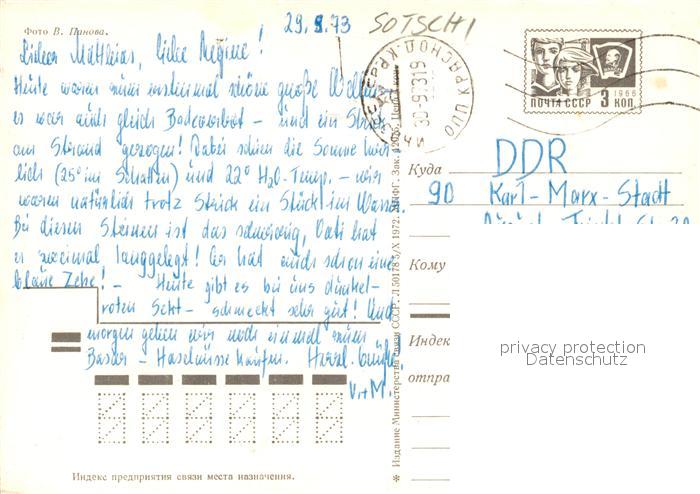 Фото В. Панова.
29.9.73
SOTSCHI
Lieber Matthias, liebe Regine!
Heute waren nun erstmal schöne große Wellen,
es war auch gleich Badeverbot – und ein Strick
am Strand gezogen! Dabei schien die Sonne herr-
lich (25° im Schatten) und 22° H₂O-Temp. – wir
waren natürlich trotz Strick ein Stück im Wasser.
Bei diesen Steinen ist das schwierig, Vati hat
es zweimal langgelegt! Er hat auch schon eine
blaue Zehe! – Heute gibt es bei uns dunkel-
roten Sekt – schmeckt sehr gut! Und
morgen gehen wir noch einmal zum
Basar – Haselnüsse kaufen. Herzl. Grüße
V.+M.
Индекс предприятия связи места назначения.
* Издание Министерства связи СССР. Л 50178 5/X 1972.
30-9.7319
ПОЧТА СССР
3 КОП.
1966
Куда
DDR
90 Karl-Marx-Stadt
Кому
Индек
отпра
privacy protection
Datenschutz